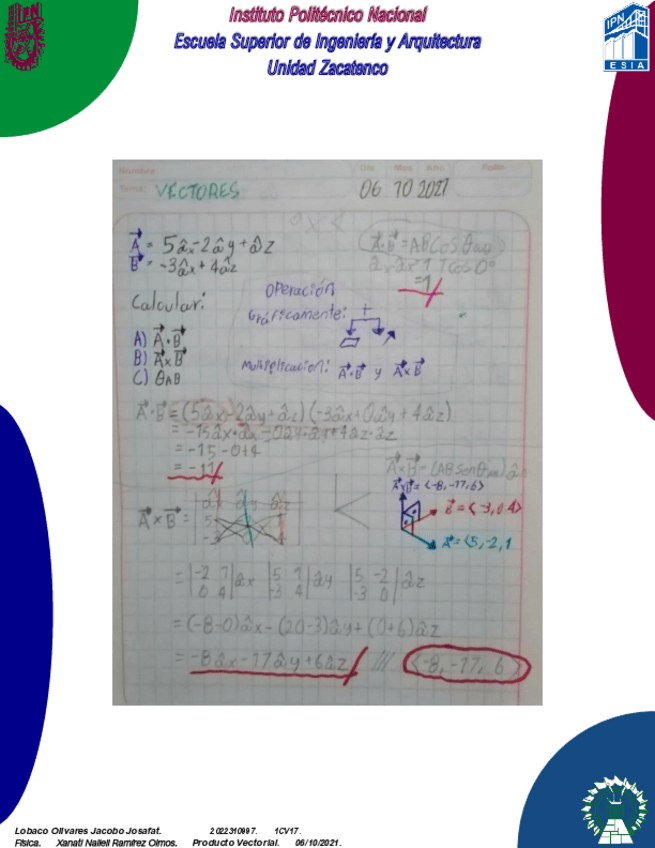 Instituto Politécnico Nacional
Escuela Superior de Ingeniería y Arquitectura
Unidad Zacatenco
IPN
ESIA
Nombre
Día Mes Año Folio
Tema: VECTORES 06 10 2021
A = 5âx-2ây+âz
B = -3âx+4âz
A·B = AB cos θAB
âx·âx 1 1 cos 0°
=1
Calcular:
A) A·B
B) A×B
C) θAB
Operación
Gráficamente: +
Multiplicacion: A·B y A×B
A·B = (5âx-2ây+âz)(-3âx+0ây+4âz)
= -15âx·âx-0ây·ây+4âz·âz
= -15-0+4
= -11
A×B = (AB sen θAB)ân
A×B = <-8,-17,6>
B = <-3,0,4>
A = <5,-2,1
A×B = | âx ây âz |
5 1
-3 4
= |-2 1| âx |5 1| ây |5 -2| âz
0 4 -3 4 -3 0
= (-8-0)âx-(20-3)ây+(0+6)âz
= -8âx-17ây+6âz /// <-8,-17,6>
Lobaco Olivares Jacobo Josafat. 2022310997. 1CV17.
Física. Xanati Nallell Ramírez Olmos. Producto Vectorial. 06/10/2021.